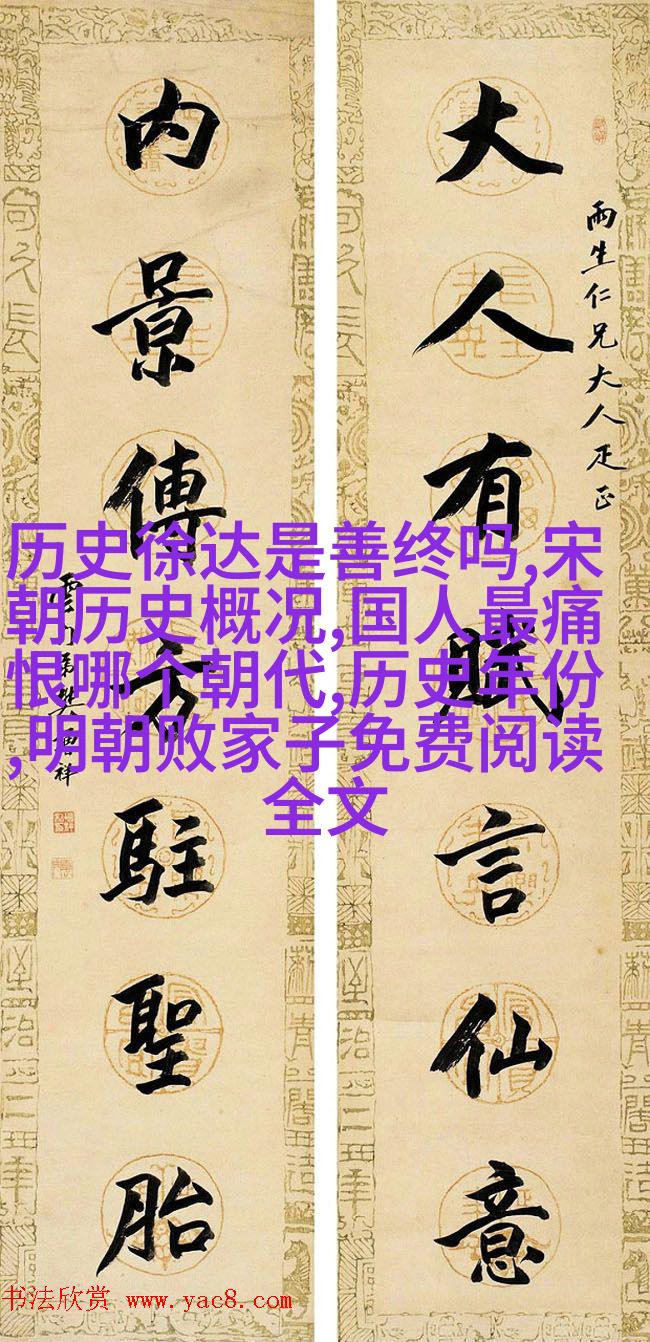 大人有賦言仙意
雨生仁兄大人疋正
内景傳芳駐聖胎
樊增祥
历史徐达是善终吗,宋
朝历史概况,国人最痛
恨哪个朝代,历史年份
,明朝败家子免费阅读
全文
书法欣赏 www.yac8.com